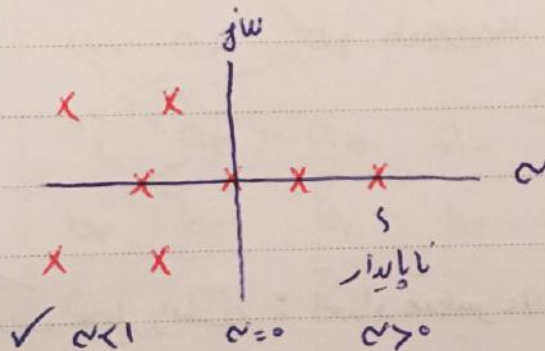 jω
σ
؟
ناپایدار
✓ σ<1 σ=0 σ>0